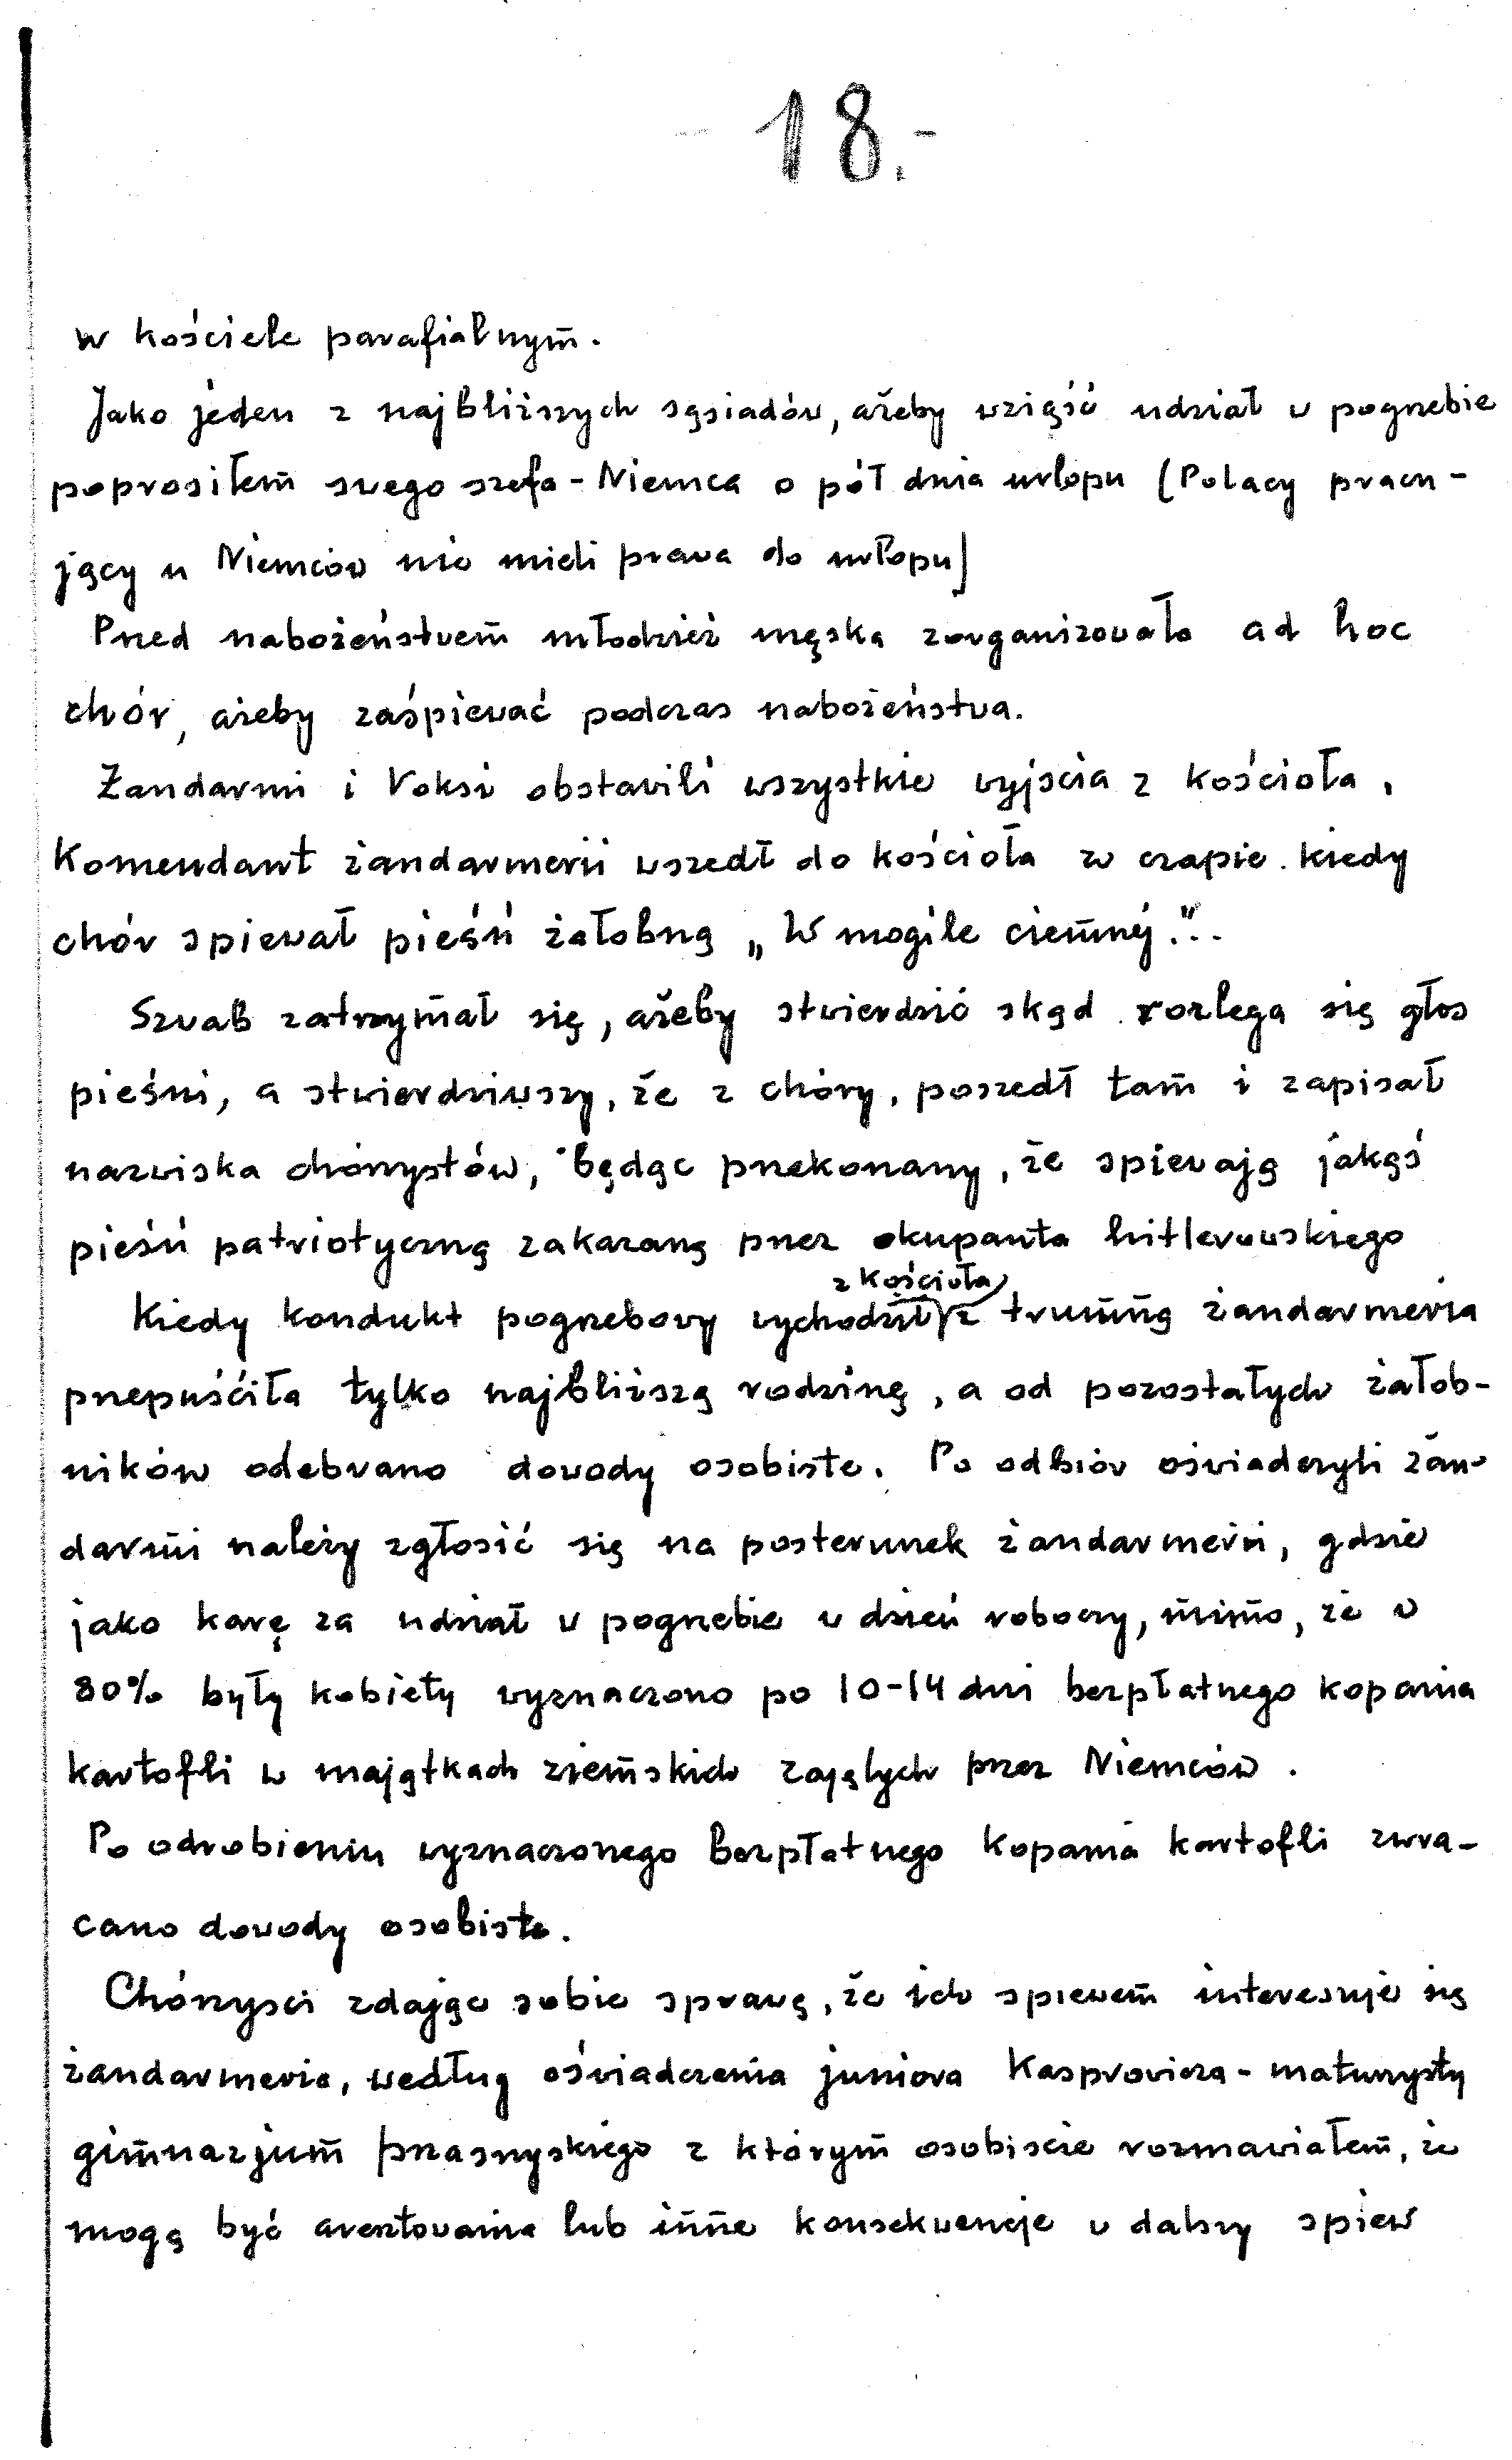 - 18.-
w kościele parafialnym.
Jako jeden z najbliższych sąsiadów, ażeby wziąść udział w pogrzebie
poprosiłem swego szefa - Niemca o pół dnia urlopu (Polacy pracu-
jący u Niemców nie mieli prawa do urłopu)
Przed nabożeństwem młodzież męska zorganizowała ad hoc
chór, ażeby zaśpiewać podczas nabożeństwa.
Żandarmi i Voksi obstawili wszystkie wyjscia z kościoła,
Komendant żandarmerii wszedł do kościoła w czapie. kiedy
chór spiewał pieśń żałobną „W mogile ciemnej"...
Szwab zatrzymał się, ażeby stwierdzić skąd rozlega się głos
pieśni, a stwierdziwszy, że z chóry, poszedł tam i zapisał
nazwiska chórzystów, będąc przekonany, że spiewają jakąś
pieśń patriotyczną zakazaną przez okupanta hitlerowskiego
z Kościoła
Kiedy kondukt pogrzebowy wychodził z trumną żandarmeria
przepuściła tylko najbliższą rodzinę, a od pozostałych żałob-
ników odebrano dowody osobiste. Po odbiór oświadczyli żan-
darmi należy zgłosić się na posterunek żandarmerii, gdzie
jako karę za udział w pogrzebie w dzień roboczy, mimo, że w
80% były kobiety wyznaczono po 10-14 dni bezpłatnego kopania
kartofli w majątkach ziemskich zajętych przez Niemców.
Po odrobieniu wyznaczonego bezpłatnego kopania kartofli zwra-
cano dowody osobiste.
Chórzysci zdając sobie sprawę, że ich spiewem interesuje się
żandarmeria, według oświadczenia juniora Kasprowicza - maturzysty
gimnazjum przasnyskiego z którym osobiscie rozmawiałem, że
mogą być aresztowania lub inne konsekwencje w dalszy spiew